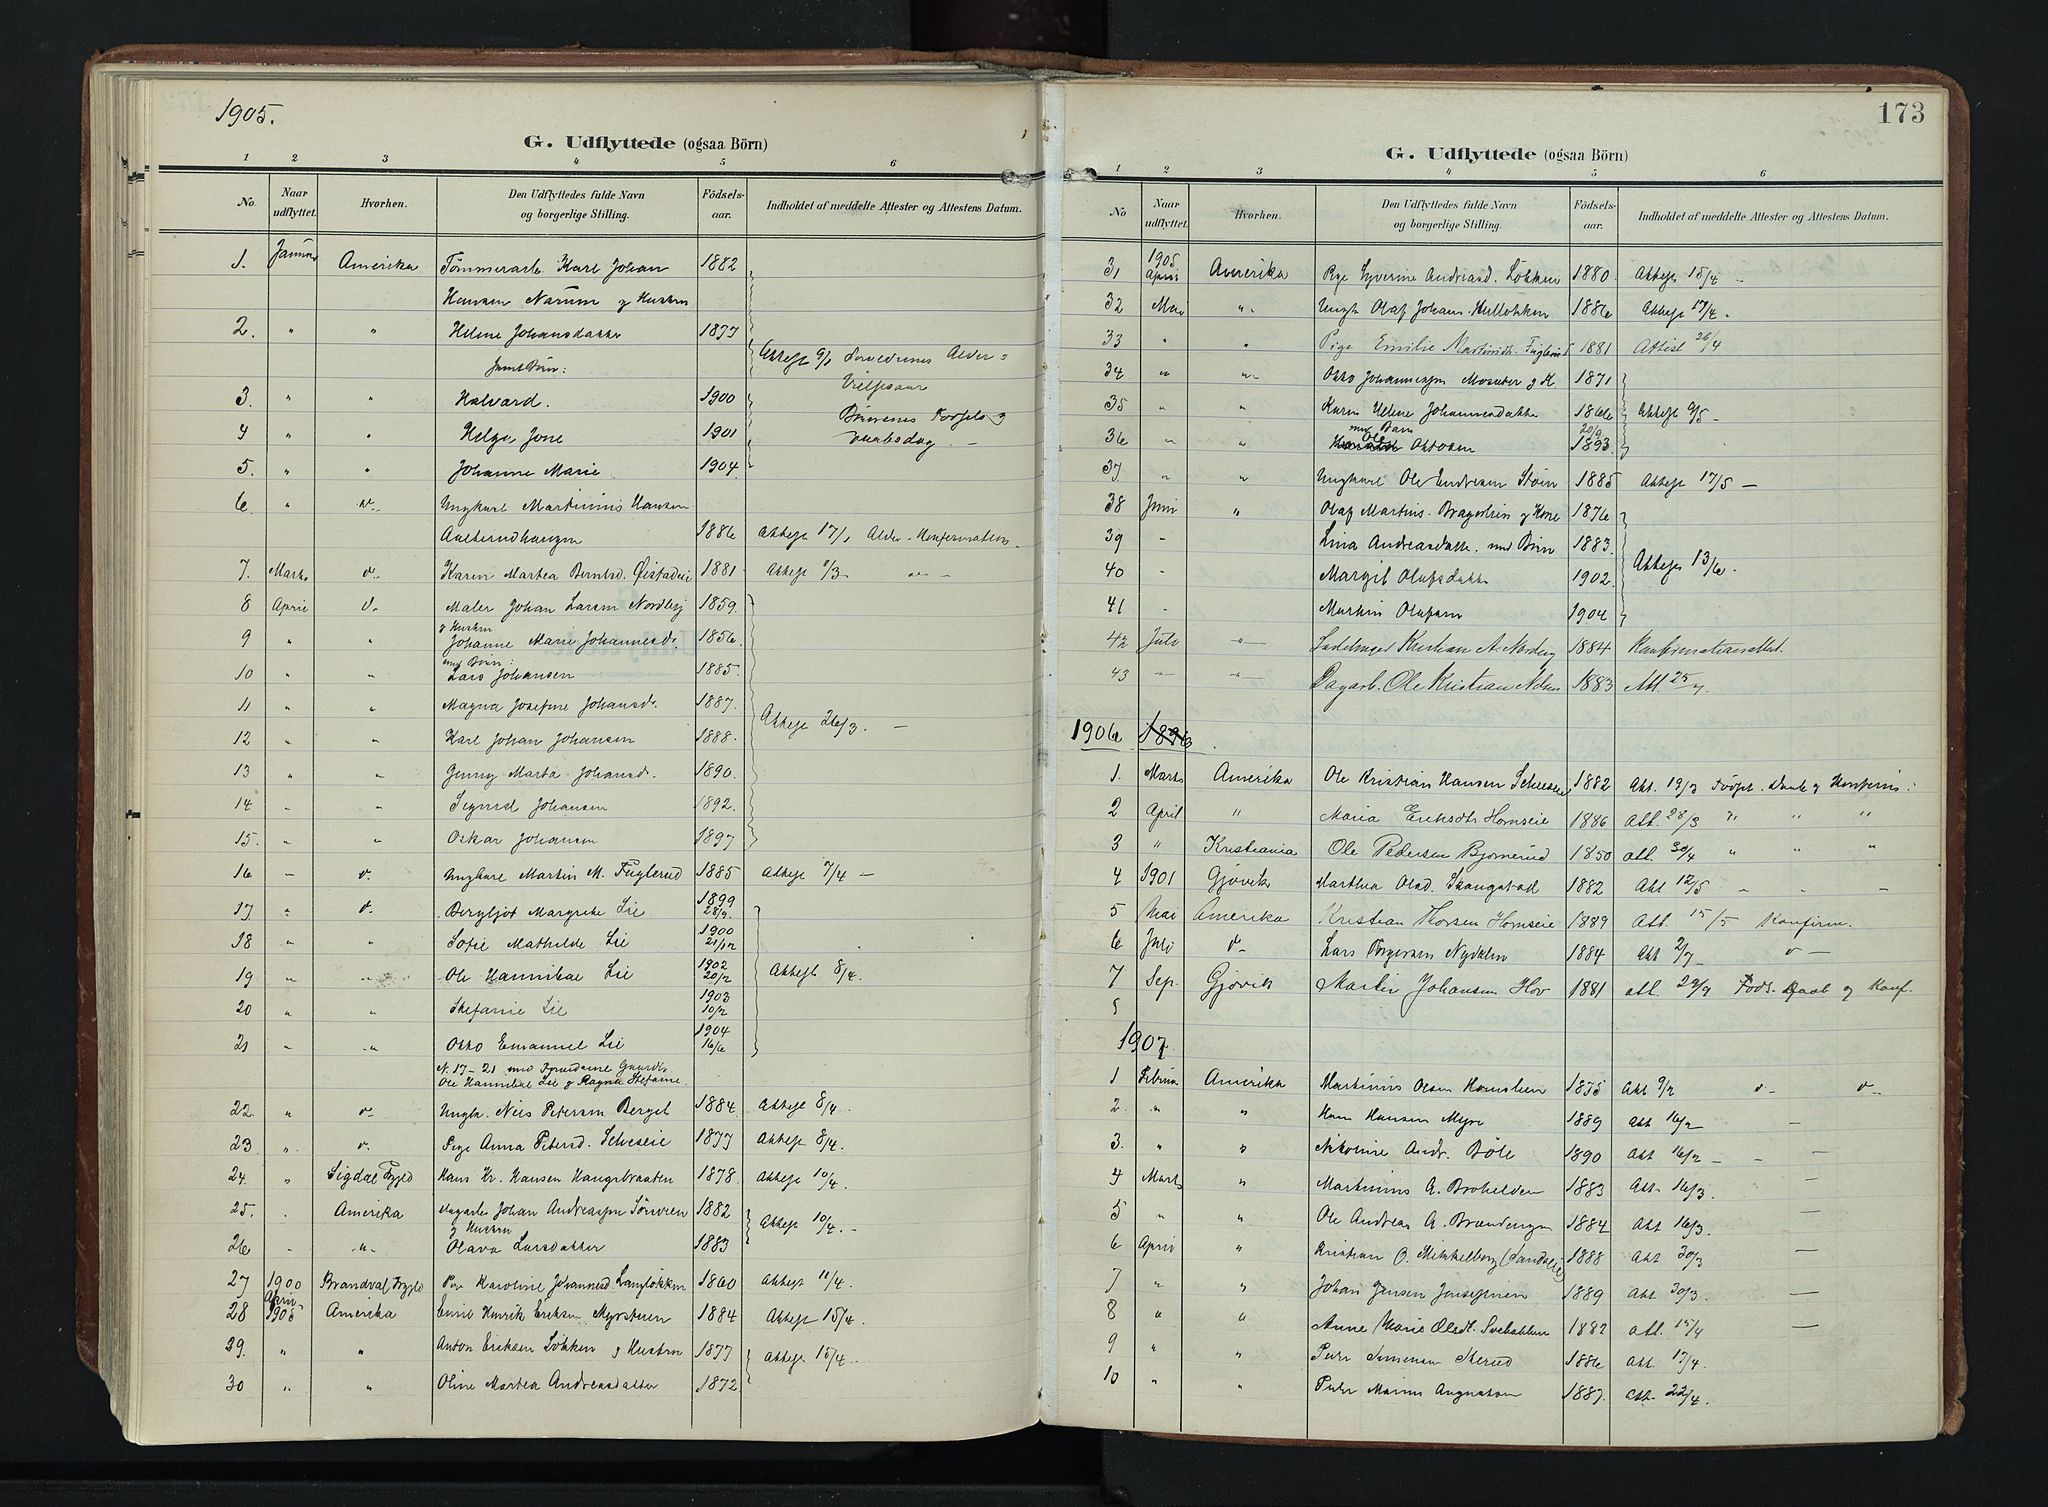 1905.
G. Udflyttede (ogsaa Börn)
1 2 3 4 5 6
No. Naar udflyttet. Hvorhen. Den Udflyttedes fulde Navn og borgerlige Stilling. Födsels-aar. Indholdet af meddelte Attester og Attestens Datum.
1. Januar Amerika Tømmerarb. Karl Johan 1882
Hansen Narum og Hustru
2. " " Helene Johansdatter 1877
samt Børn: Attest 6/1 Forældrenes Alder
3. " " Halvard. 1900
4 " " Helga Jone 1901 Børnenes Fødsels og
5. " " Johanne Marie 1904. daabsdag. –
6. " d.. Ungkarl Martinius Hansen
1886 Attest 17/1 Alder. Konfirmation.
7. Marts d.. Karen Martea Berntsd. 1881 Attest /3 –
8 April d.. Maler Johan Larsen Nordby 1859.
9 " " og Hustru Johanne Marie Johannesd. 1856.
10 " " med Børn: Lars Johansen 1885.
11 " " Magna Josefine Johansd. 1887. Attest 26/3. –
12 " " Karl Johan Johansen 1888.
13 " " Jenny Marta Johansd. 1890.
14 " " Sigurd Johansen 1892.
15. " " Oskar Johansen 1897
16 – d. Ungkarl Martin M. Fuglerud 1885 Attest 7/4 –
17 " d. Bergljot Margrete Lie 1899 28/9.
18 " " Sofie Mathilde Lie 1900 21/12
19 " " Ole Hannibal Lie 1902 20/12 Attest 8/4.
20 " " Stefanie Lie 1903 10/12
21 " " Otto Emanuel Lie 1904 16/6
N. 17–21 med Forældrene
Ole Hannibal Lie og Ragna Stefanie.
22. " d.. Ungk. Nils Petersen Berget 1884 Attest 8/4.
23 " d. Pige Anna Petersd. 1877 Attest 8/4.
24. " Sigdal Prgld Hans Kr. Hansen Haugsbraaten 1878. Attest 10/4.
25. . Amerika Johan Andreassen 1882 Attest 10/4. –
26 – " og Hustru Olava Larsdatter 1883
27 1900 Brandval Prgld Karoline Johannesd. 1860 Attest 11/4.
28 April 1905 Amerika Emil Henrik Eriksen Myrsteen 1884 Attest 15/4.
29. " " Anton Eriksen Løkken og Hustru 1877 Attest 15/4.
30 " " Oline Martea Andreasdatter 1872
173
G. Udflyttede (ogsaa Börn)
1 2 3 4 5 6
No Naar udflyttet. Hvorhen. Den Udflyttedes fulde Navn og borgerlige Stilling. Födsels-aar. Indholdet af meddelte Attester og Attestens Datum.
31 1905 April Amerika Pige Syverine Andreasd. Løkken 1880. Attest 15/4 –
32 Mai " Ungk. Olaf Johans. 1886 Attest 17/4.
33 " " Pige Emilie Martinsdt. Fuglerud 1881 Attest 26/4
34 " " Otto Johannessen Mosæter og H. 1871
35 " " Karen Helene Johannesdatter 1866 Attest 9/5 –
36 " " med Barn Ole Ottosen 20/9 1893
37. " " Ungkarl Ole Andreasen 1885 Attest 17/5 –
38 Juni " Olaf Martins. og Kone 1876
39 – Lina Andreasdatter med Børn 1883.
40 – Margit Olafsdatter 1902. Attest 13/6.
41 – Martin Olafsen 1904
42 Juli " Kristian A. 1884 Konfirmationsattest.
43 " " Dagarb. Ole Kristian Nelsen 1883 Att. 25/7.
1906 1896
1. Marts Amerika Ole Kristian Hansen 1882 Att. 19/3 Fødsl. Daab og Konfirm.
2 April " Maria Eriksdt. Hornseie 1886 Att. 28/3 " " "
3 " Kristiania Ole Pedersen Bjørnerud 1850 att. 30/4 " " "
4 1901 Gjøvik Marthea Olsd. Skaugstad 1882 Att 12/5 " . –
5 Mai Amerika Kristian Thorsen Hornseie 1889 Att. 15/5 Konfirm.
6 Juli d– Lars Torgersen Nydalen 1884 Att 2/7 – d –
7 Sep. Gjøvik Martin Johansen Hov 1881 att. 29/9 Føds. Daab og Konf.
1907.
1 Februar Amerika Martinius Olsen 1875 Att 9/2 d– d..
2. " " Hans Hansen Myre 1889 Att 16/2 –
3. " " Nikoline Andr. Bøle 1890 Att 16/2 – – –
4 Marts " Martinius A. Broholden 1883 Att. 16/3. –
5 " " Ole Andreas A. Brændengen 1884 Att 16/3. –
6 April " Kristian O. Mikkelborg 1888 Att 30/3 –
7 " " Johan Jensen 1889 Att 30/3. –
8 " " Anne Marie Olsdt. 1882 att. 15/4 –
9 " " Peder Simensen 1886 Att. 17/4.
10 " " Peder Marius Augustsen 1887. Att. 22/4.